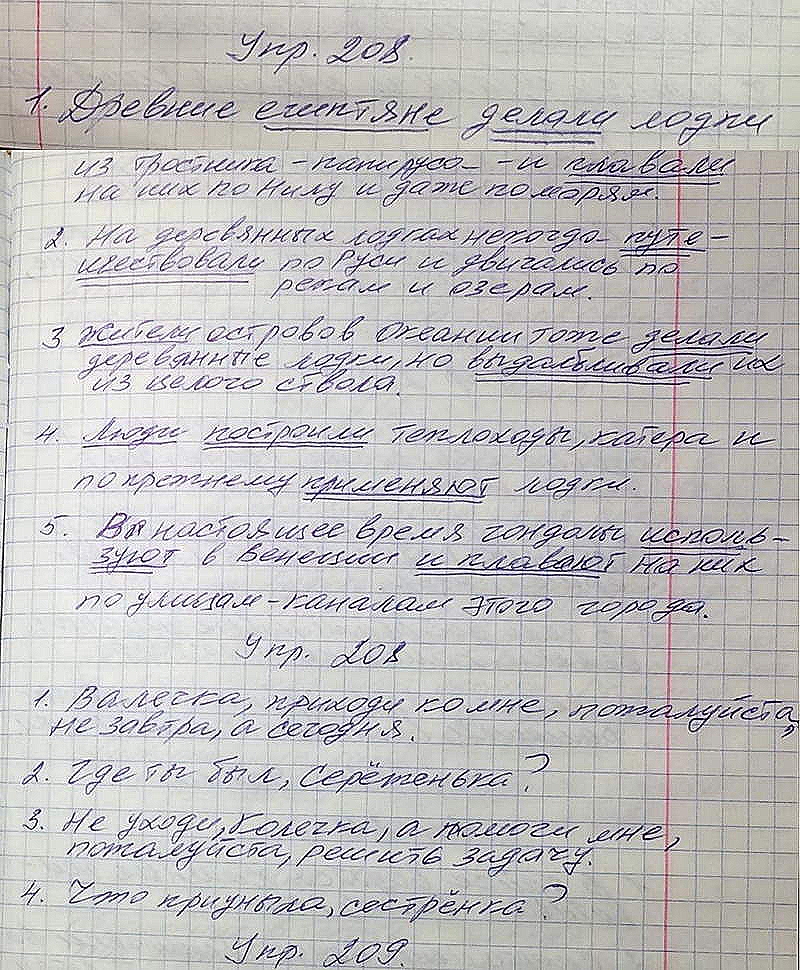 Упр. 208.
1. Древние египтяне делали лодки
из тростника - папируса - и плавали
на них по Нилу и даже по морям.
2. На деревянных лодках некогда путе-
шествовали по Руси и двигались по
рекам и озерам.
3 Жители островов Океании тоже делали
деревянные лодки, но выдалбливали их
из целого ствола.
4. Люди построили теплоходы, катера и
по прежнему применяют лодки.
5. В настоящее время гондолы исполь-
зуют в Венеции и плавают на них
по улицам-каналам этого города.
Упр. 208
1. Валечка, приходи ко мне, пожалуйста,
не завтра, а сегодня.
2. Где ты был, Серёженька?
3. Не уходи, Колечка, а помоги мне,
пожалуйста, решить задачу.
4. Что приуныла, сестрёнка?
Упр. 209.